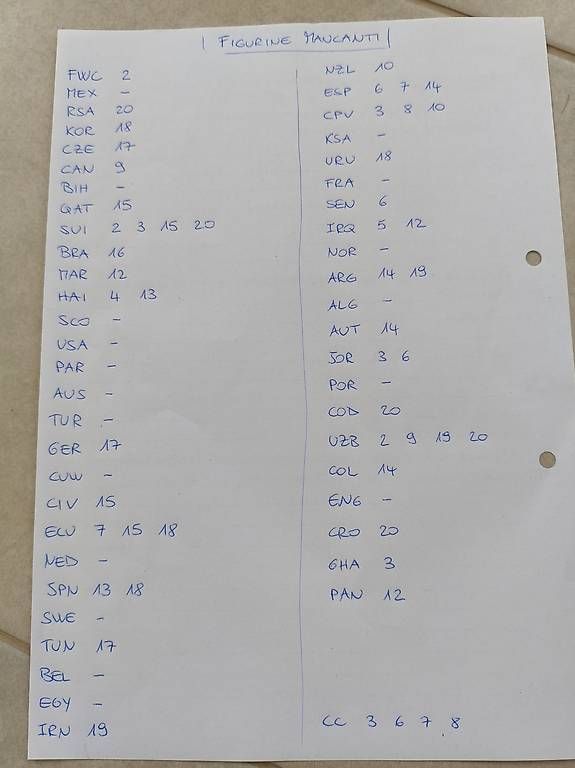 FIGURINE MANCANTI
FWC 2
MEX -
RSA 20
KOR 18
CZE 17
CAN 9
BIH -
QAT 15
SUI 2 3 15 20
BRA 16
MAR 12
HAI 4 13
SCO -
USA -
PAR -
AUS -
TUR -
GER 17
CUW -
CIV 15
ECU 7 15 18
NED -
JPN 13 18
SWE -
TUN 17
BEL -
EGY -
IRN 19
NZL 10
ESP 6 7 14
CPV 3 8 10
KSA -
URU 18
FRA -
SEN 6
IRQ 5 12
NOR -
ARG 14 19
ALG -
AUT 14
JOR 3 6
POR -
COD 20
UZB 2 9 19 20
COL 14
ENG -
CRO 20
GHA 3
PAN 12
CC 3 6 7 8